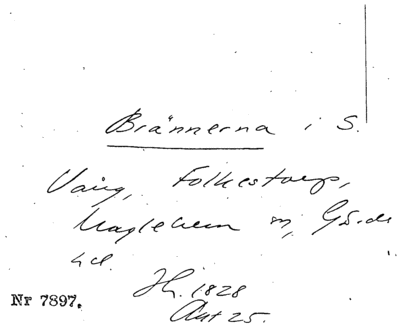 Brännerna i S.
Vång, Folkestorps,
Maglehem m, Gärds
hd.
Hs. 1828
Akt 25.
Nr 7897.